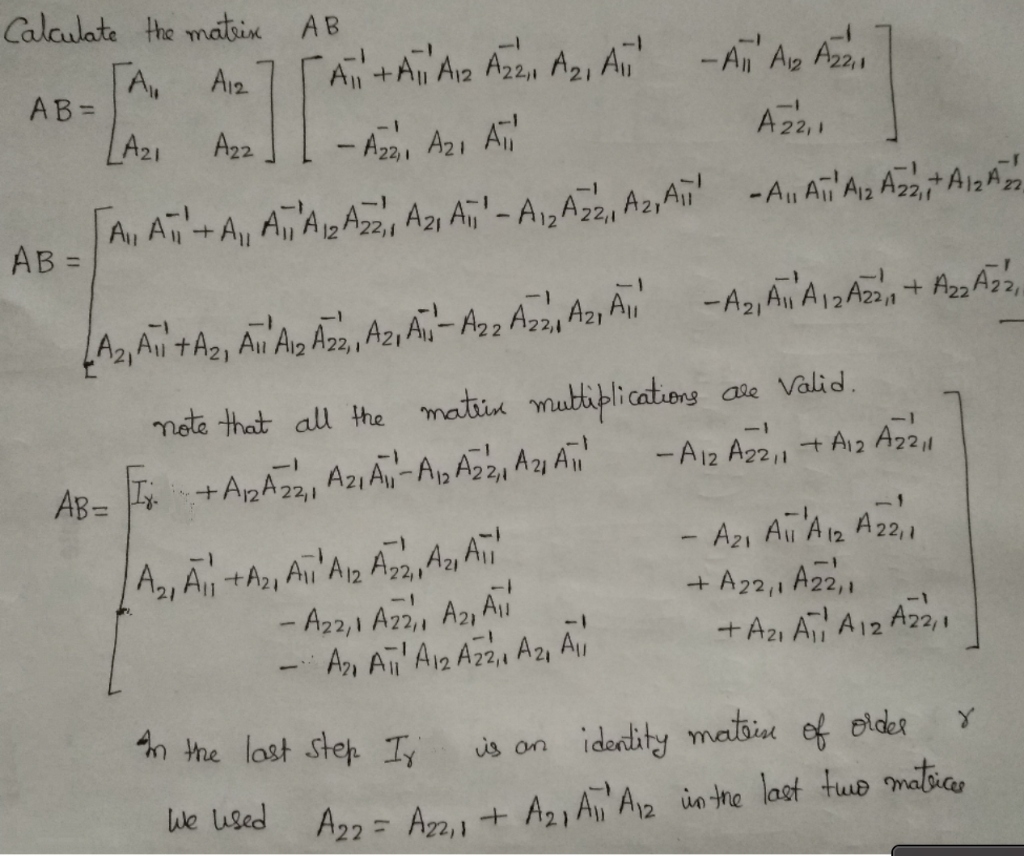 Calculate the matrix AB
AB = [ A₁₁ A₁₂ ; A₂₁ A₂₂ ] [ A₁₁⁻¹ + A₁₁⁻¹ A₁₂ A₂₂,₁⁻¹ A₂₁ A₁₁⁻¹   - A₁₁⁻¹ A₁₂ A₂₂,₁⁻¹ ; - A₂₂,₁⁻¹ A₂₁ A₁₁⁻¹   A₂₂,₁⁻¹ ]
AB = [ A₁₁ A₁₁⁻¹ + A₁₁ A₁₁⁻¹ A₁₂ A₂₂,₁⁻¹ A₂₁ A₁₁⁻¹ - A₁₂ A₂₂,₁⁻¹ A₂₁ A₁₁⁻¹   - A₁₁ A₁₁⁻¹ A₁₂ A₂₂,₁⁻¹ + A₁₂ A₂₂,⁻¹
A₂₁ A₁₁⁻¹ + A₂₁ A₁₁⁻¹ A₁₂ A₂₂,₁⁻¹ A₂₁ A₁₁⁻¹ - A₂₂ A₂₂,₁⁻¹ A₂₁ A₁₁⁻¹   - A₂₁ A₁₁⁻¹ A₁₂ A₂₂,₁⁻¹ + A₂₂ A₂₂,₁⁻¹
note that all the matrix multiplications are valid.
AB = [ Iᵣ + A₁₂ A₂₂,₁⁻¹ A₂₁ A₁₁⁻¹ - A₁₂ A₂₂,₁⁻¹ A₂₁ A₁₁⁻¹   - A₁₂ A₂₂,₁⁻¹ + A₁₂ A₂₂,₁⁻¹
A₂₁ A₁₁⁻¹ + A₂₁ A₁₁⁻¹ A₁₂ A₂₂,₁⁻¹ A₂₁ A₁₁⁻¹   - A₂₁ A₁₁⁻¹ A₁₂ A₂₂,₁⁻¹
- A₂₂,₁ A₂₂,₁⁻¹ A₂₁ A₁₁⁻¹   + A₂₂,₁ A₂₂,₁⁻¹
- A₂₁ A₁₁⁻¹ A₁₂ A₂₂,₁⁻¹ A₂₁ A₁₁⁻¹   + A₂₁ A₁₁⁻¹ A₁₂ A₂₂,₁⁻¹ ]
In the last step Iᵣ is an identity matrix of order r
We used A₂₂ = A₂₂,₁ + A₂₁ A₁₁⁻¹ A₁₂ in the last two matrices